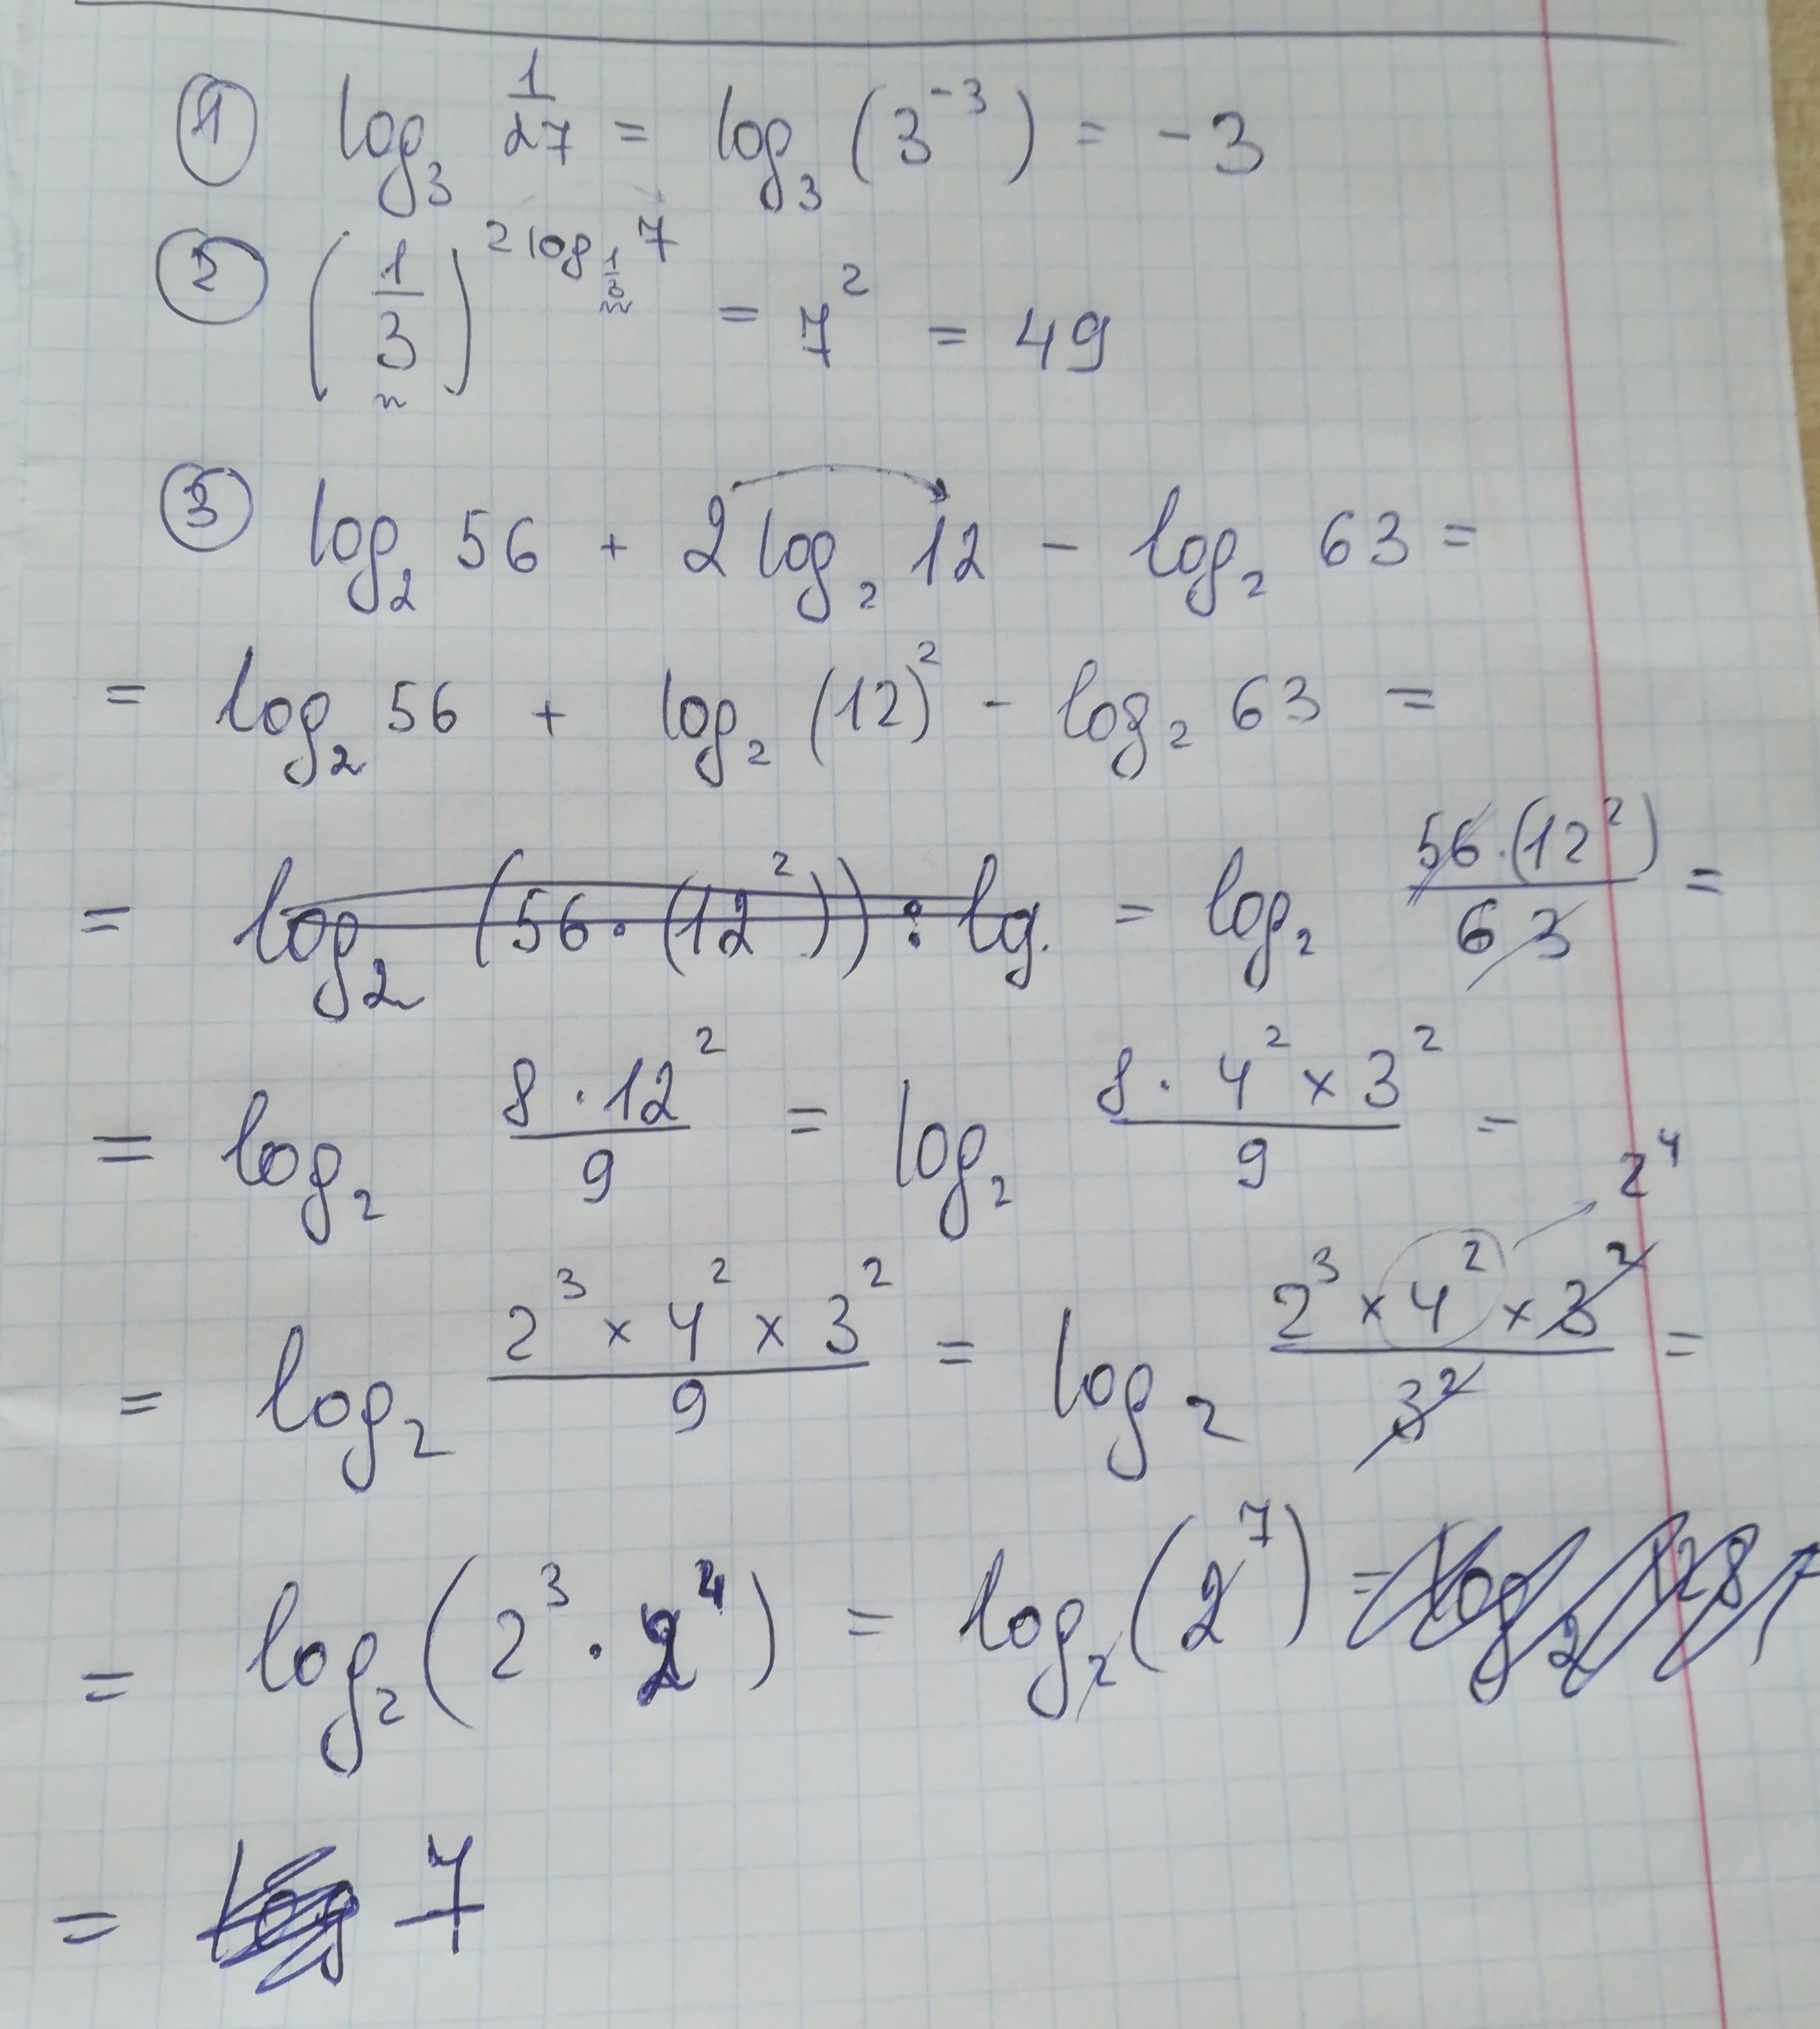 ① log₃ 1/27 = log₃ (3⁻³) = -3
② (1/3)^(2 log_(1/3) 7) = 7² = 49
③ log₂ 56 + 2 log₂ 12 - log₂ 63 =
= log₂ 56 + log₂ (12)² - log₂ 63 =
= log₂ (56 · (12²)) : lg. = log₂ 56·(12²)/63 =
= log₂ 8 · 12²/9 = log₂ 8 · 4² × 3²/9 =
2⁴
= log₂ 2³ × 4² × 3²/9 = log₂ 2³ × 4² × 3²/3² =
= log₂ (2³ · 2⁴) = log₂ (2⁷) = log₂ 128
= log 7